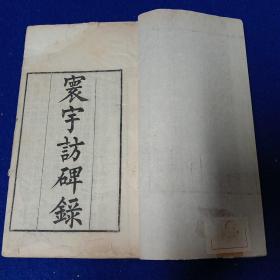 寰宇訪碑錄